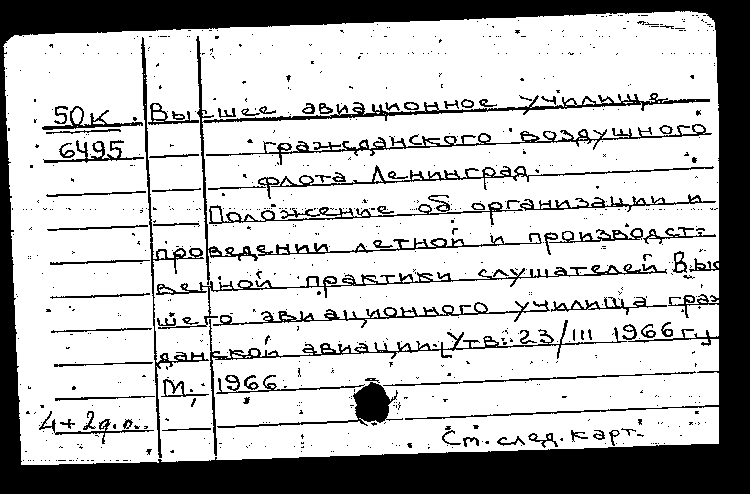 50к Высшее авиационное училище
6495 гражданского воздушного
флота. Ленинград.
Положение об организации и
проведении летной и производст-
венной практики слушателей Выс
шего авиационного училища граж
данской авиации. [Утв. 23/III 1966 г
М., 1966.
4+2д.л.
См. след. карт.